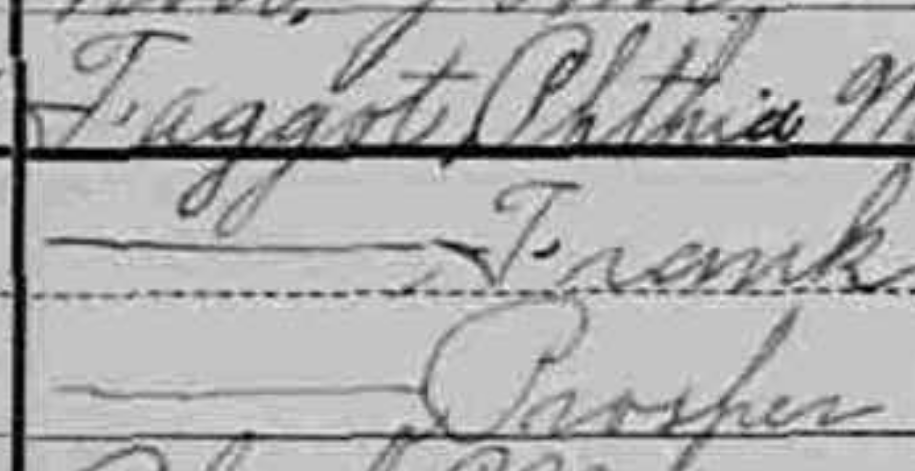 Faggot, Phthia M
— Frank
— Prosper